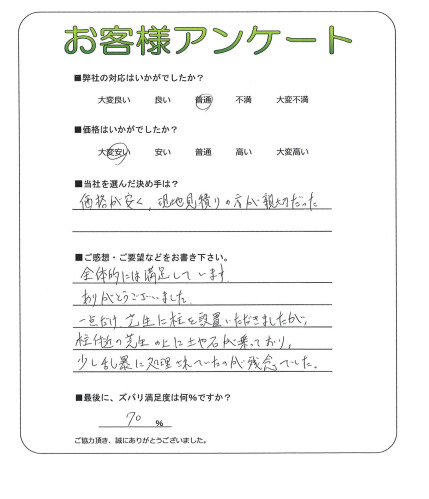 お客様アンケート
■弊社の対応はいかがでしたか?
大変良い 良い 普通 不満 大変不満
■価格はいかがでしたか?
大変安い 安い 普通 高い 大変高い
■当社を選んだ決め手は?
価格が安く、現地見積りの方が親切だった
■ご感想・ご要望などをお書き下さい。
全体的には満足しています。
ありがとうございました。
一点だけ、芝生に柱を設置いただきましたが、
柱付近の芝生の上に土や石が乗っており、
少し乱暴に処理されていたのが残念でした。
■最後に、ズバリ満足度は何%ですか?
70 %
ご協力頂き、誠にありがとうございました。